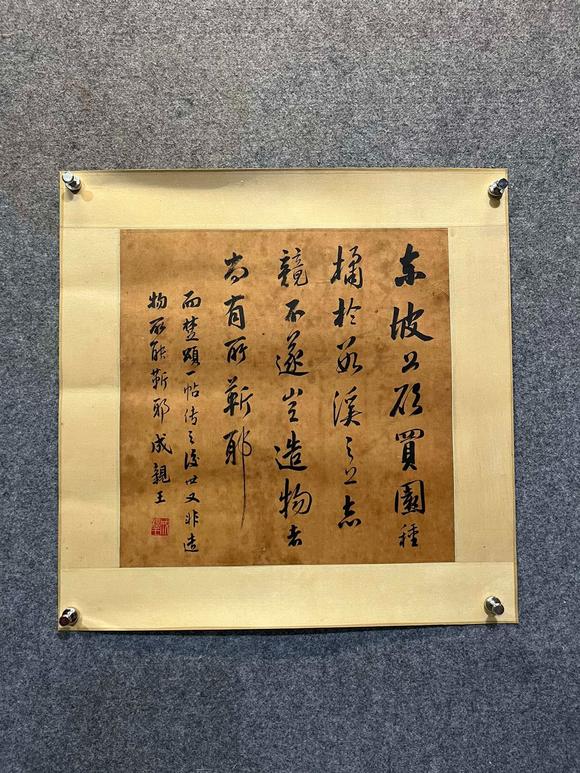 東坡公欲買園種
橘於荆溪之上志
競不遂豈造物者
尚有所靳耶
而楚頌一帖傳之後世又非造
物所能靳耶成親王